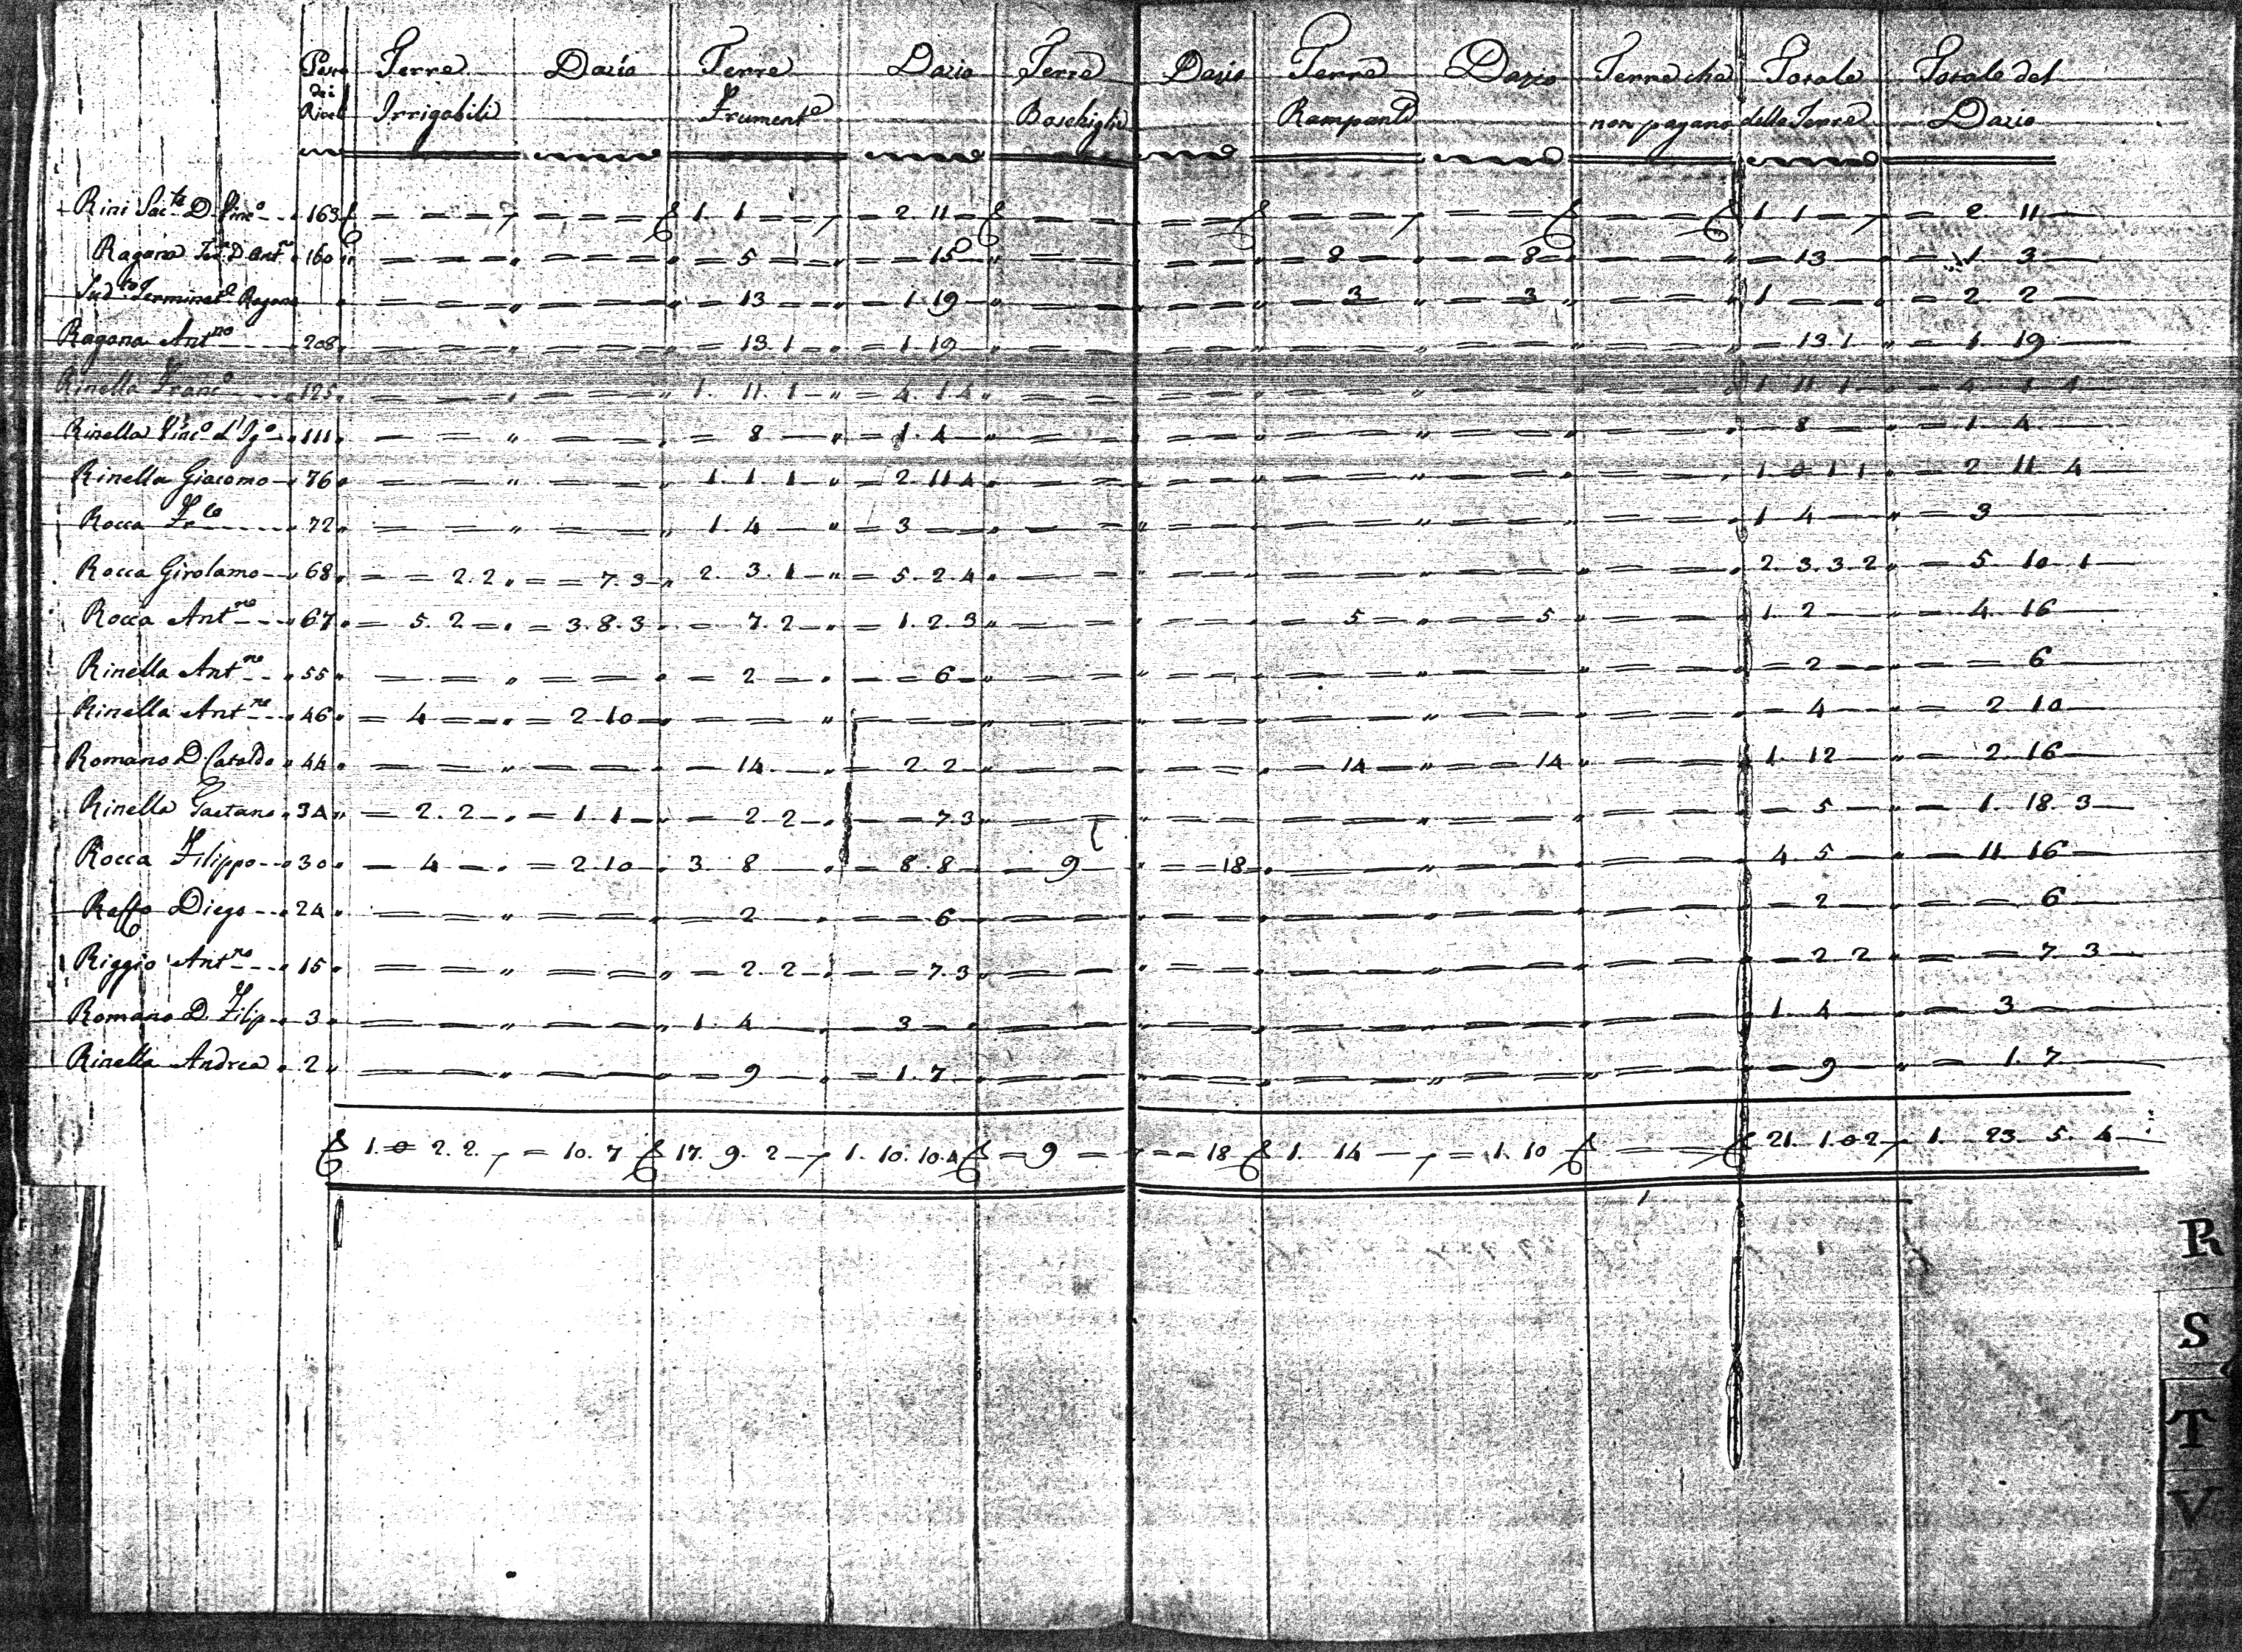 Terre Dazio Terre Dazio Terre Dazio Terre Dazio Terre che Totale Totale del
dei
Rivel Irrigabili Frumente Boschiglie Rampanti non pagano delle Terre Dazio
Rini Sac.te D. Vinc.o 163 = = = = = = 1 1 = = 2 11 = = = = = = = = = = 1 1 = = 2 11
Ragona D. Ant.no 160 = = = = = = = 5 = = 15 = = = = = 8 = = 8 = = = 13 = 1 3
Sud.to Ragona = = = = = = = 13 = = 1 19 = = = = = 3 = = 3 = = 1 = = 2 2
Ragona Ant.no 208 = = = = = = = 13. 1 = = 1 19 = = = = = = = = = = = 13 1 = 1 19
Rinella Franc.o 125 = = = = = = 1. 11. 1 = 4. 1. 4 = = = = = = = = = = 1 11 1 = 4 1 4
Rinella Vinc.o d'Ig.o 111 = = = = = = 8 = 1. 4 = = = = = = = = = = = 8 = 1. 4
Rinella Giacomo 76 = = = = = 1. 1 1 = 2. 11 4 = = = = = = = = = = 1 0 1 1 = 2 11 4
Rocca 72 = = = = = 1. 4 = 3 = = = = = = = = = = = 1 4 = 3
Rocca Girolamo 68 = = 2. 2 = = 7. 3 2. 3. 1 = 5. 2. 4 = = = = = = = = = = 2. 3. 3. 2 = 5. 10 1
Rocca Ant.no 67 = 5. 2 = = 3. 8. 3 = 7. 2 = 1. 2. 3 = = = = = 5 = = = 5 = = 1. 2 = 4. 16
Rinella Ant.no 55 = = = = = = 2 = = = 6 = = = = = = = = = = = 2 = = 6
Rinella Ant.no 46 = 4 = = 2 10 = = = = = = = = = = = = = = = = 4 = 2 10
Romano D. Cataldo 44 = = = = = = 14 = 2. 2 = = = = = 14 = = 14 = = 1. 12 = 2. 16
Rinella Gaetano 34 = 2. 2 = = 1 1 = 2 2 = = 7. 3 = = = = = = = = = = = 5 = 1. 18. 3
Rocca Filippo 30 = 4 = = 2 10 3. 8 = 8. 8 = 9 = = 18 = = = = = = 4. 5 = 11. 16
Raffo Diego 24 = = = = = = 2 = = = 6 = = = = = = = = = = = 2 = = 6
Riggio Ant.no 15 = = = = = = 2 2 = = 7. 3 = = = = = = = = = = = 2 2 = = 7 3
Romano D. Filip. 3 = = = = = 1. 4 = 3 = = = = = = = = = = = 1. 4 = 3
Rinella Andrea 2 = = = = = = 9 = 1. 7 = = = = = = = = = = = 9 = 1. 7
1. 0 2. 2 = 10. 7 17. 9. 2 1. 10. 10. 4 = 9 = = = 18 1. 14 = 1. 10 = = 21. 1. 0 2 1. 23. 5. 4
R
S
T
V